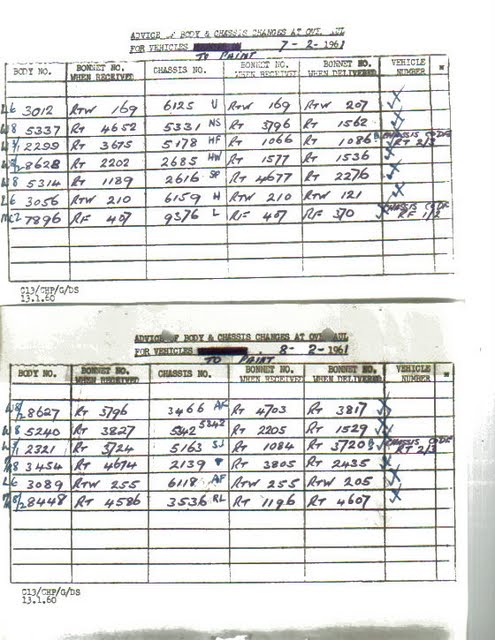 ADVICE OF BODY & CHASSIS CHANGES AT OVERHAUL
FOR VEHICLES TO PAINT 7-2-1961
BODY NO. BONNET NO. WHEN RECEIVED CHASSIS NO. BONNET NO. WHEN RECEIVED BONNET NO. WHEN DELIVERED VEHICLE NUMBER
L6 3012 RTW 169 6125 U RTW 169 RTW 207
W8 5337 RT 4652 5331 NS RT 3796 RT 1562
2299 RT 3675 5178 HF RT 1066 RT 1086 CHASSIS CODE RT 2/3
8628 RT 2202 2685 HW RT 1577 RT 1536
W8 5314 RT 1189 2616 SP RT 4677 RT 2276
L6 3056 RTW 210 6159 H RTW 210 RTW 121
7896 RF 407 9376 L RF 407 RF 370 CHASSIS CODE RF 1/2
C13/CHP/G/DS
13.1.60
ADVICE OF BODY & CHASSIS CHANGES AT OVERHAUL
FOR VEHICLES TO PAINT 8-2-1961
BODY NO. BONNET NO. WHEN RECEIVED CHASSIS NO. BONNET NO. WHEN RECEIVED BONNET NO. WHEN DELIVERED VEHICLE NUMBER
8627 RT 3796 3466 AF RT 4703 RT 3817
W8 5240 RT 3827 5342 5342 RT 2205 RT 1529
2321 RT 3724 5163 SJ RT 1084 RT 3720 CHASSIS CODE RT 2/3
3454 RT 4674 2139 RT 3805 RT 2435
L6 3089 RTW 255 6118 AF RTW 255 RTW 205
8448 RT 4586 3536 RL RT 1196 RT 4607
C13/CHP/G/DS
13.1.60